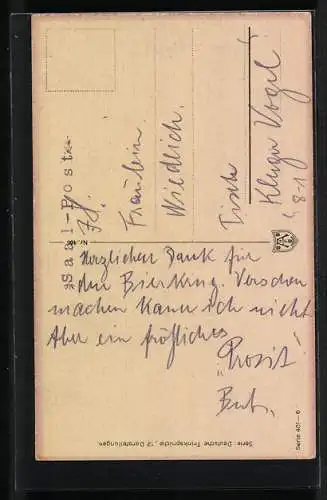 *Saal-Post*
Fräulein
Wiedlich.
Tisch
Kluger Vogel
Nr. 406
Herzlichen Dank für
den Bierkrug. Verschen
machen kann ich nicht
Aber ein fröhliches
"Prosit"
Serie: Deutsche Trinksprüche, 12 Darstellungen
Serie 401—6